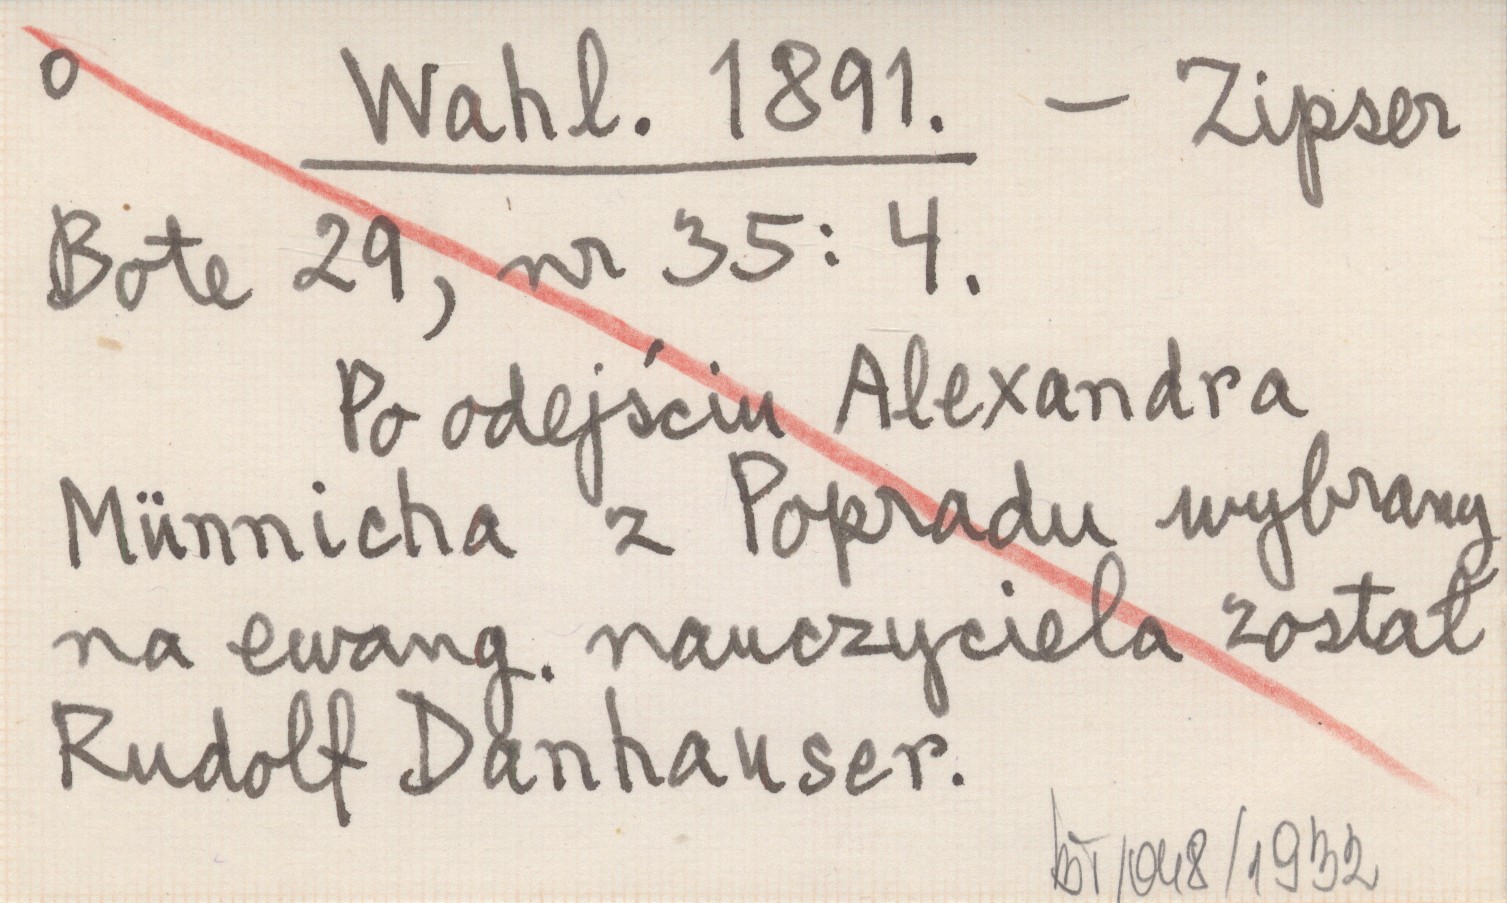 o Wahl. 1891. — Zipser
Bote 29, nr 35: 4.
Po odejściu Alexandra
Münnicha z Popradu wybrany
na ewang. nauczyciela został
Rudolf Danhauser.
/048/1932